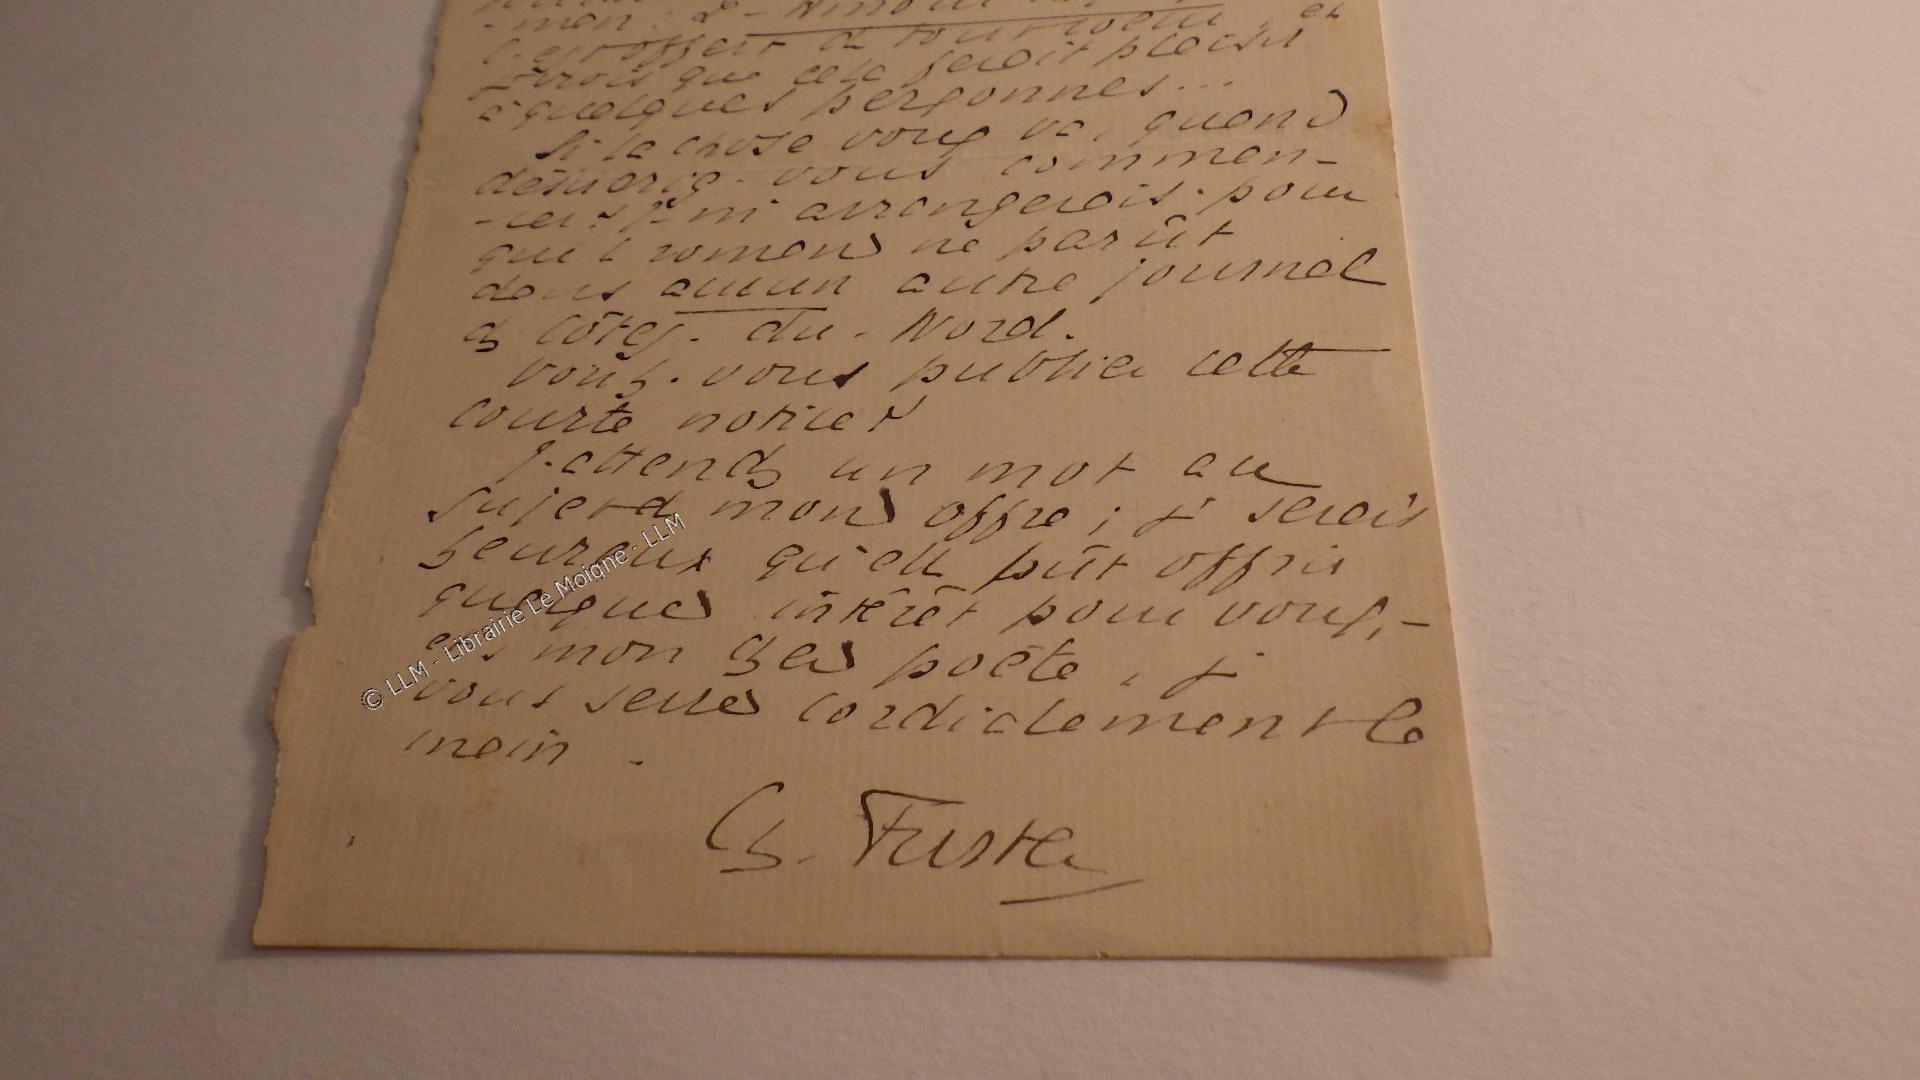 l'est offert de tous côtés, et
je crois que cela ferait plaisir
à quelques personnes...
Si la chose vous va, quand
désirerie-vous commen-
-cer? Je m'arrangerais pour
que le roman ne parût
dans aucun autre journal
des Côtes-du-Nord.
Voulez-vous publier cette
courte notice?
J'attends un mot au
sujet de mon offre ; je serais
heureux qu'elle pût offrir
quelque intérêt pour vous, -
mon cher poète, je
vous serre cordialement la
main.
Ch. Fuster
© LLM - Librairie Le Moigne - LLM